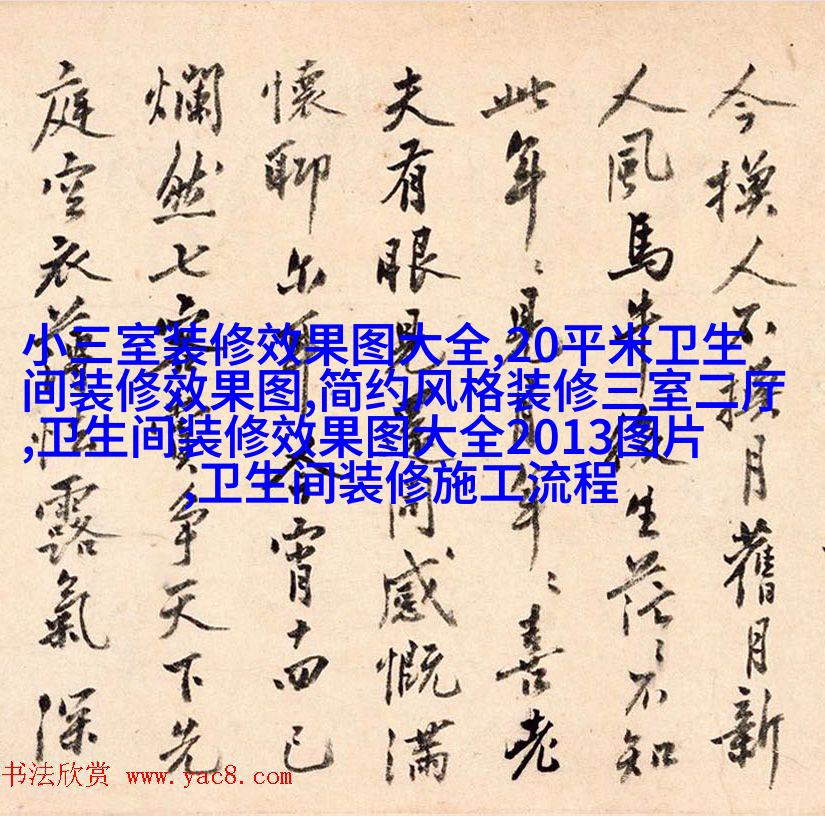 今換人不換月舊月新
人風馬牛後生茫〻不知
此年〻見月年〻喜老
夫有眼見同感慨滿
懷聊尔今宵十四已
爛然七客爭天下先
庭空衣薄怯露氣深
小三室装修效果图大全,20平米卫生
间装修效果图,简约风格装修三室二厅
,卫生间装修效果图大全2013图片
,卫生间装修施工流程
书法欣赏 www.yac8.com